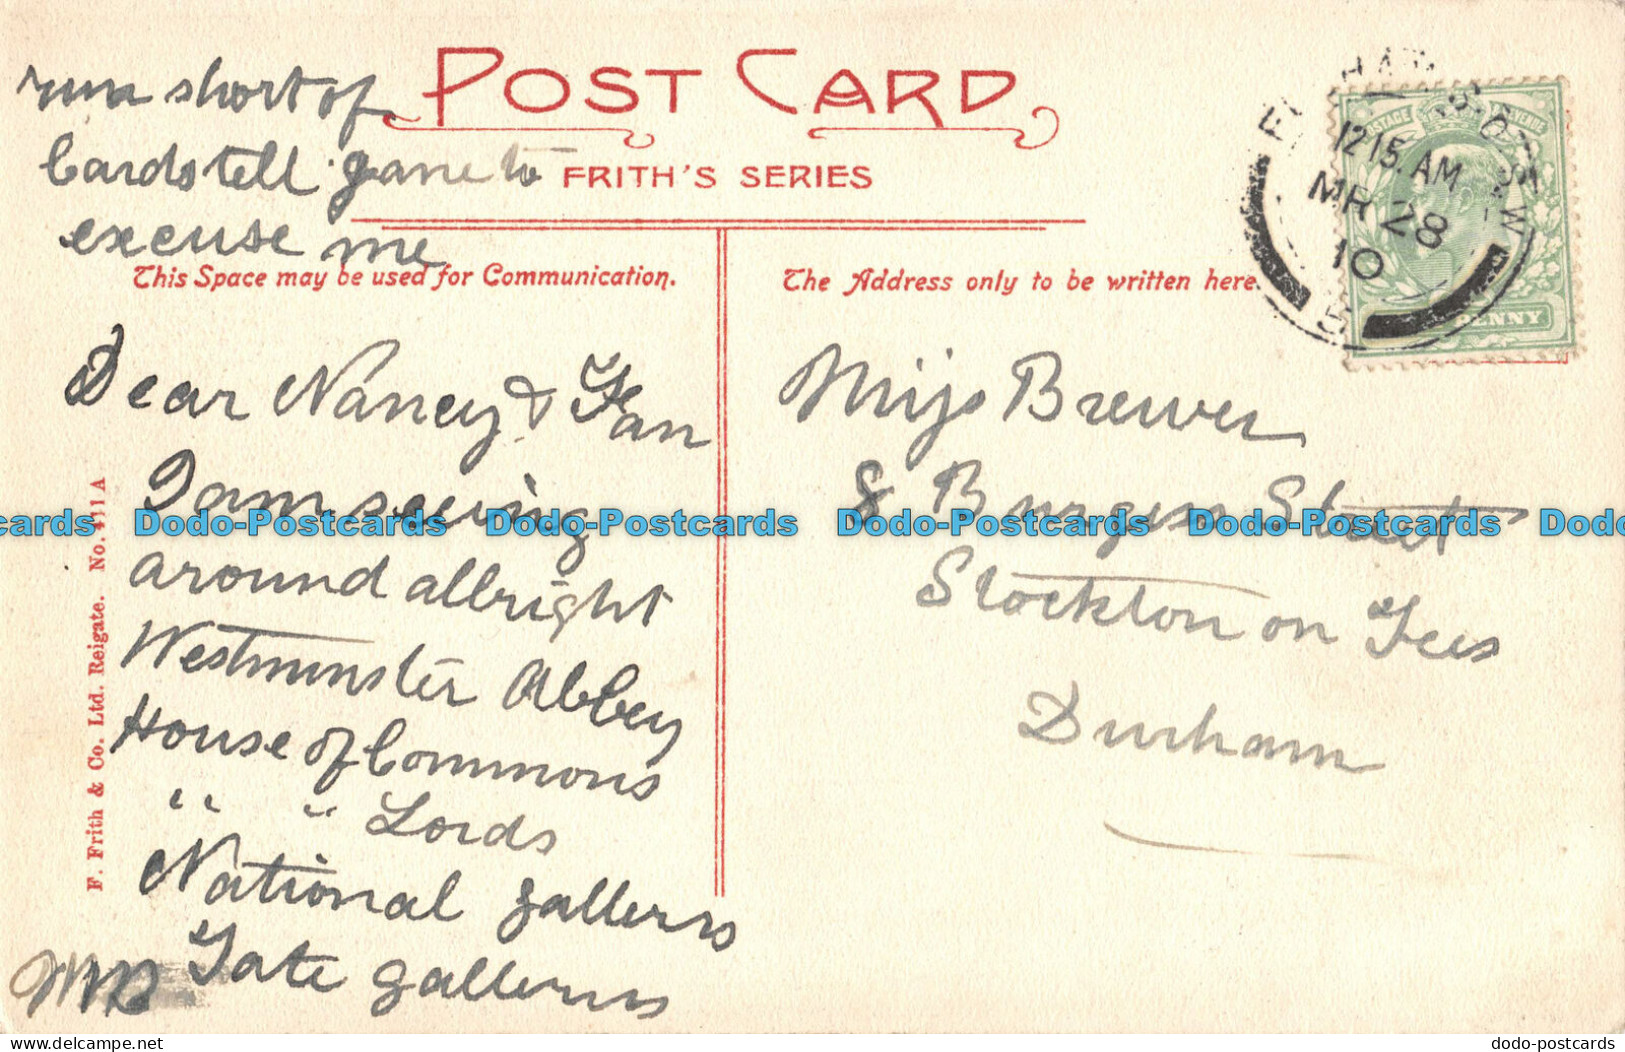 run short of
Cards tell Jane to
excuse me
POST CARD
FRITH'S SERIES
This Space may be used for Communication.
The Address only to be written here.
12 15. AM
MR 28
10
S.W
5
POSTAGE REVENUE
PENNY
Dear Nancy & Fan
I am seeing
around allright
Westminster Abbey
House of Commons
" " Lords
National gallerys
Tate gallerys
Miss Brewer
8 Street
Stockton on Tees
Durham
F. Frith & Co. Ltd. Reigate. No. 411 A
Dodo-Postcards Dodo-Postcards Dodo-Postcards
dodo-postcards.com
dodo-postcards